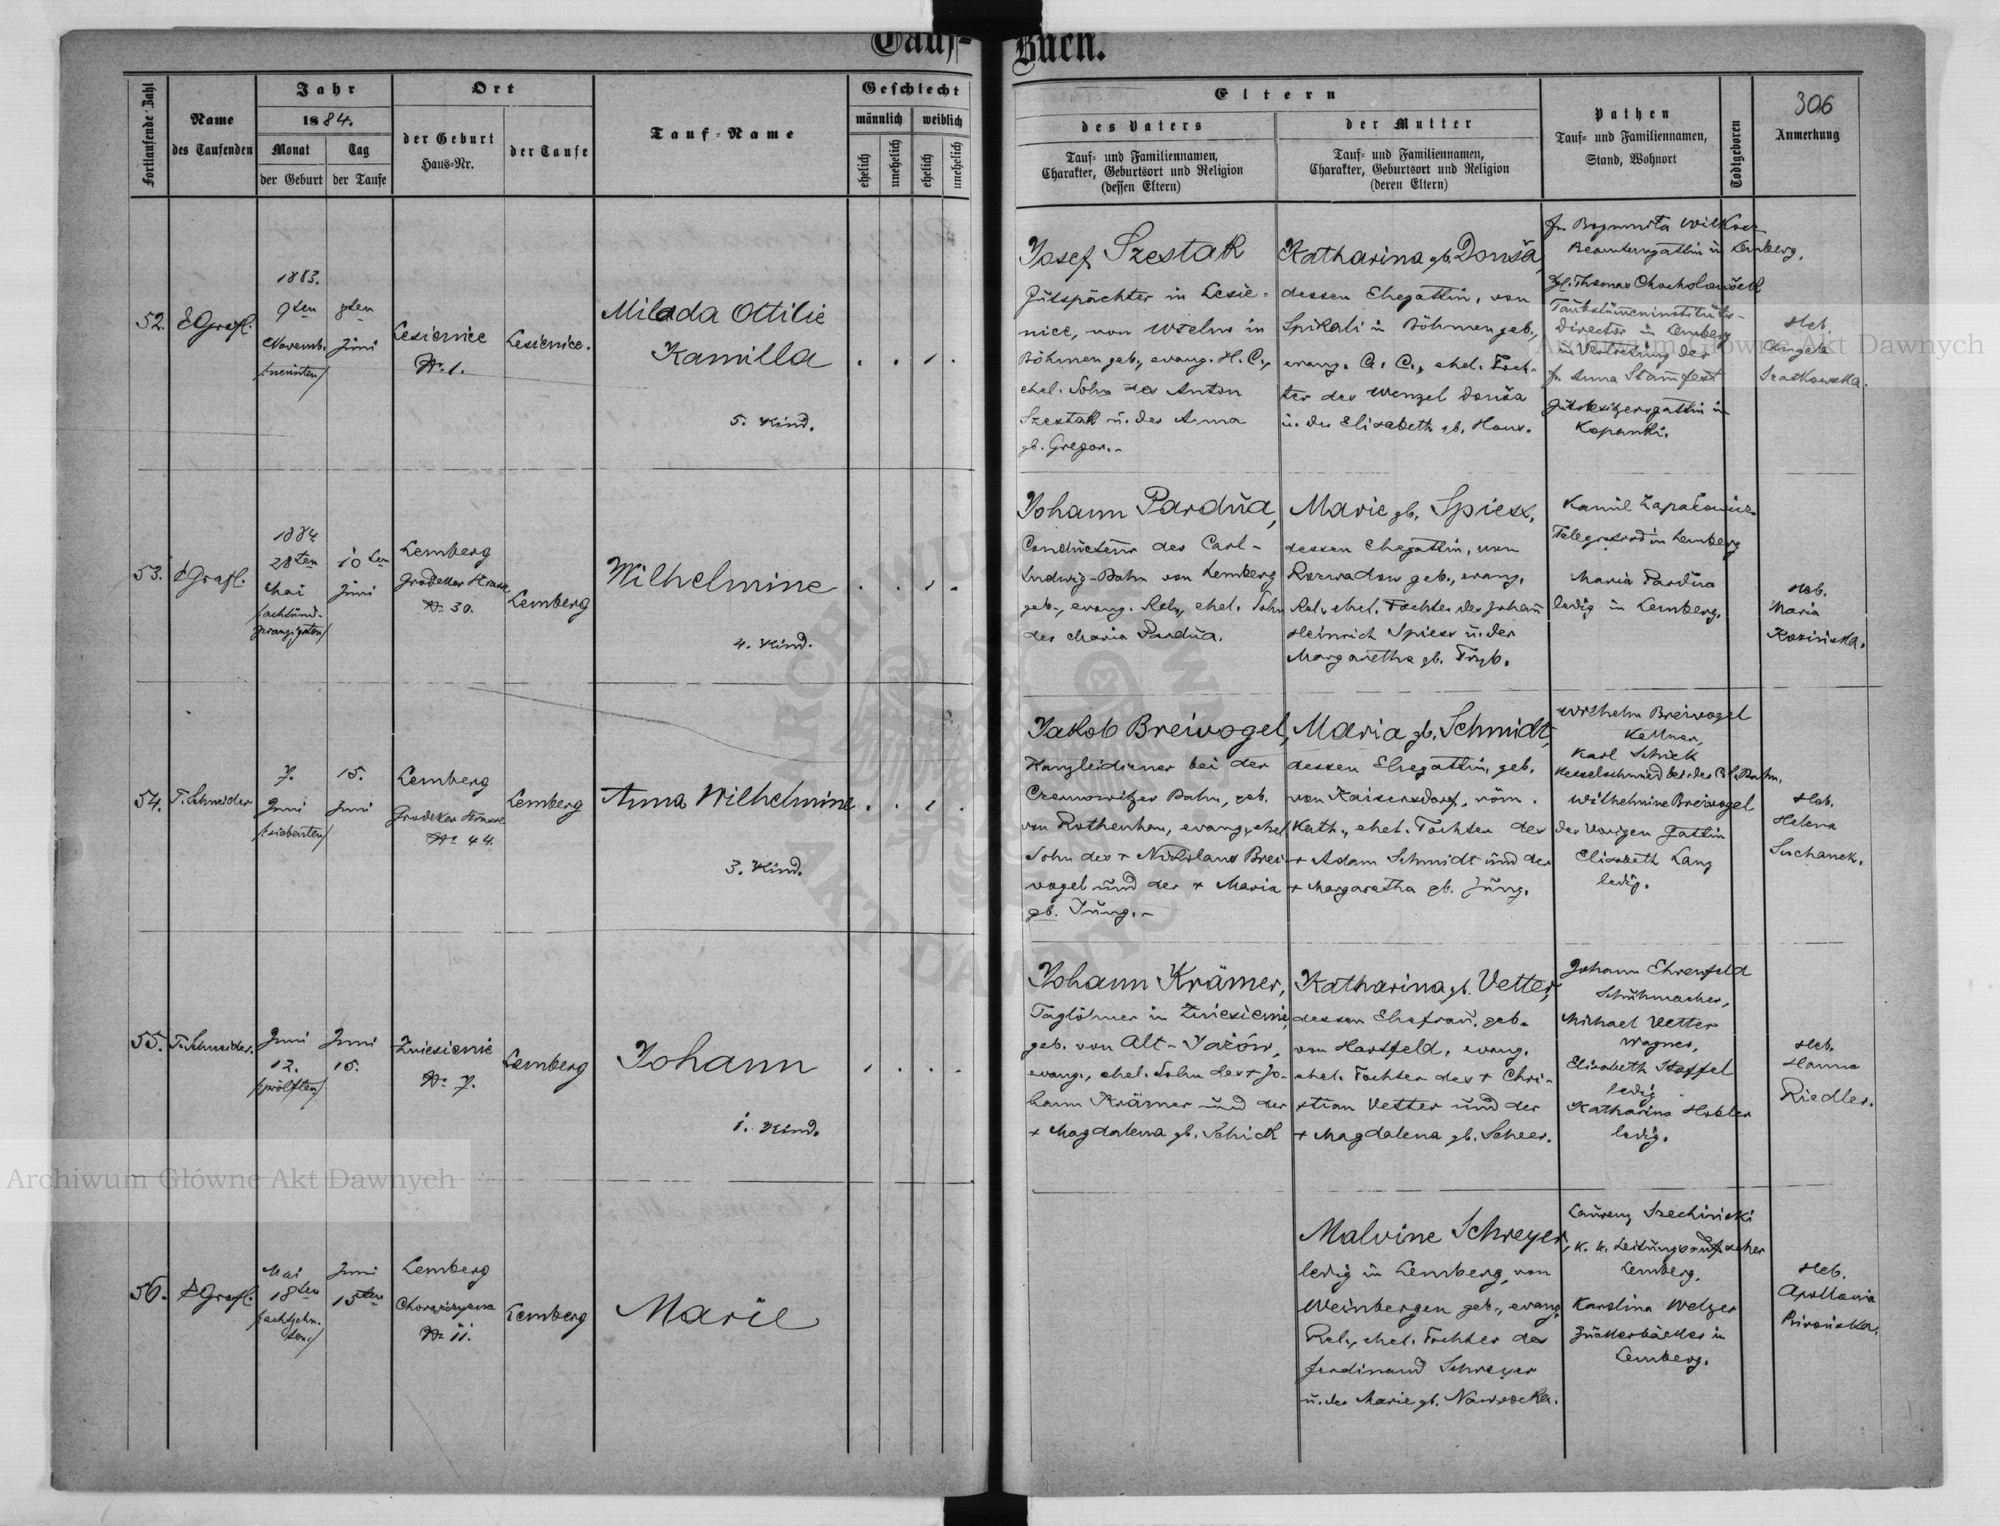 Tauf-Buch.
306
Fortlaufende Zahl
Name
des Taufenden
Jahr
1884.
Monat
der Geburt
Tag
der Taufe
Ort
der Geburt
Haus-Nr.
der Taufe
Tauf-Name
Geschlecht
männlich
weiblich
ehelich
unehelich
ehelich
unehelich
Eltern
des Vaters
Tauf- und Familiennamen,
Charakter, Geburtsort und Religion
(dessen Eltern)
der Mutter
Tauf- und Familiennamen,
Charakter, Geburtsort und Religion
(deren Eltern)
Pathen
Tauf- und Familiennamen,
Stand, Wohnort
Todtgeboren
Anmerkung
52.
EGrafl.
1883.
9ten
Novemb.
/neunten/
8ten
Juni
Lesienice
Nr. 1.
Lesienice.
Milada Ottilie
Kamilla
5. Kind.
Josef Szestak
Gutspächter in Lesie-
nice, von in
Böhmen geb., evang. H. C.,
ehel. Sohn des Anton
Szestak u. der Anna
gb. Gregor.-
Katharina gb. Douša,
dessen Ehegattin, von
in Böhmen geb.,
evang. A. C., ehel. Toch-
ter des Wenzel Douša
u. der Elisabeth gb. Hous.
Fr. Bogumila
Beamtensgattin in Lemberg.
H. Thomas
Taubstummeninstituts-
Director in Lemberg
in Vertretung der
Fr. Anna Stamfest
Gutsbesitzersgattin in
Kopanki.
Heb.
Angela
Szatkowska.
53.
EGrafl.
1884
28ten
Mai
/achtund-
zwanzigsten/
10ten
Juni
Lemberg
Grodeker Strasse
Nr. 30.
Lemberg
Wilhelmine
4. Kind.
Johann Pardua,
Conducteur der Carl-
Ludwig-Bahn von Lemberg
geb., evang. Rel., ehel. Sohn
der Maria Pardua.
Marie gb. Spiess,
dessen Ehegattin, von
Rozwadow geb., evang.
Rel., ehel. Tochter des Johann
Heinrich Spiess u. der
Margaretha gb. Fryb.
Kamil Zapałowicz
in Lemberg
Maria Pardua
ledig in Lemberg.
Heb.
Maria
Rosinska.
54.
T. Schneider
7.
Juni
/siebenten/
15.
Juni
Lemberg
Grodeker Strasse
Nr. 44.
Lemberg
Anna Wilhelmine
3. Kind.
Jakob Breivogel,
Kanzleidiener bei der
Czernowitzer Bahn, geb.
von Rothenhan, evang., ehel.
Sohn des + Nikolaus Brei-
vogel und der + Maria
gb. Jung.-
Maria gb. Schmidt,
dessen Ehegattin, geb.
von Kaisersdorf, röm.
Kath., ehel. Tochter des
+ Adam Schmidt und der
+ Margaretha gb. Jung.
Wilhelm Breivogel
Kellner,
Karl Schick
Kesselschmied bei der C. L. Bahn.
Wilhelmine Breivogel
des Vorigen Gattin
Elisabeth Lang
ledig.
Heb.
Helena
Suchanek.
55.
T. Schneider.
Juni
12.
/zwölften/
Juni
15.
Zniesienie
Nr. 7.
Lemberg
Johann
1. Kind.
Johann Krämer,
Taglöhner in Zniesienie,
geb. von Alt-Jażów,
evang., ehel. Sohn des + Jo-
hann Krämer und der
+ Magdalena gb. Schick
Katharina gb. Vetter,
dessen Ehefrau, geb.
von Hartfeld, evang.
ehel. Tochter des + Chri-
stian Vetter und der
+ Magdalena gb. Scheer.
Johann Ehrenfeld
Schuhmacher,
Michael Vetter
Wagner,
Elisabeth Stoffel
ledig
Katharina Hobler
ledig.
Heb.
Hanna
Riedler.
56.
EGrafl.
Mai
18ten
/achtzehn-
ten./
Juni
15ten
Lemberg
Nr. 11.
Lemberg
Marie
Malvine Schreyer,
ledig in Lemberg, von
Weinbergen geb., evang.
Rel., ehel. Tochter des
Ferdinand Schreyer
u. der Marie gb.
Laurenz Szechinski
k. k. Leitungsaufseher
Lemberg.
Karolina Welzer
Zuckerbäcker in
Lemberg.
Heb.
Apollonia
Archiwum Główne Akt Dawnych
Archiwum Główne Akt Dawnych